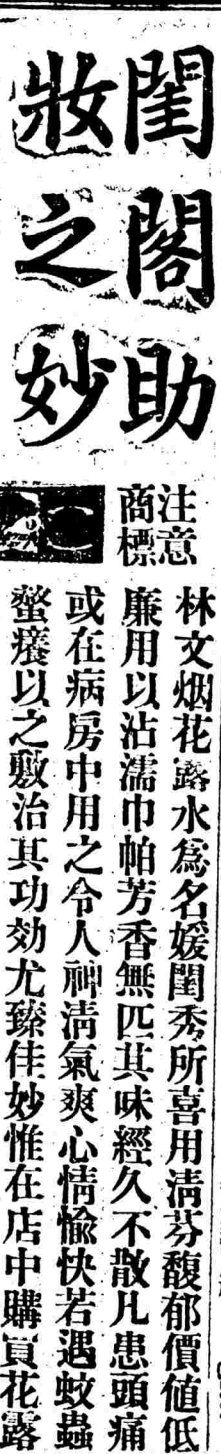 閨閣助
妝之妙
注意
商標
林文烟花露水爲名媛閨秀所喜用淸芬馥郁價値低
廉用以沾濡巾帕芳香無匹其味經久不散凡患頭痛
或在病房中用之令人神淸氣爽心情愉快若遇蚊蟲
螫癢以之敷治其功効尤臻佳妙惟在店中購買花露